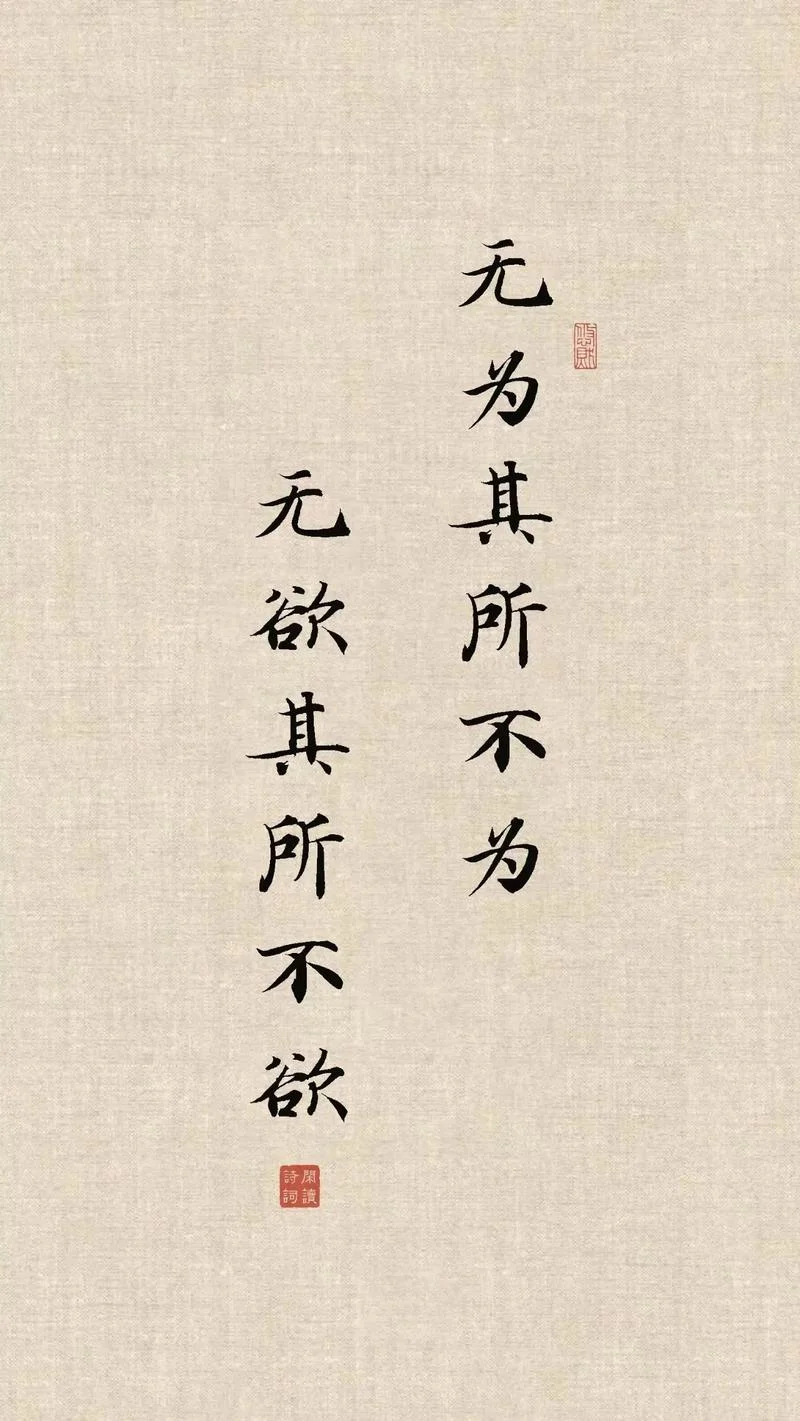 无为其所不为
无欲其所不欲
閑讀
詩詞